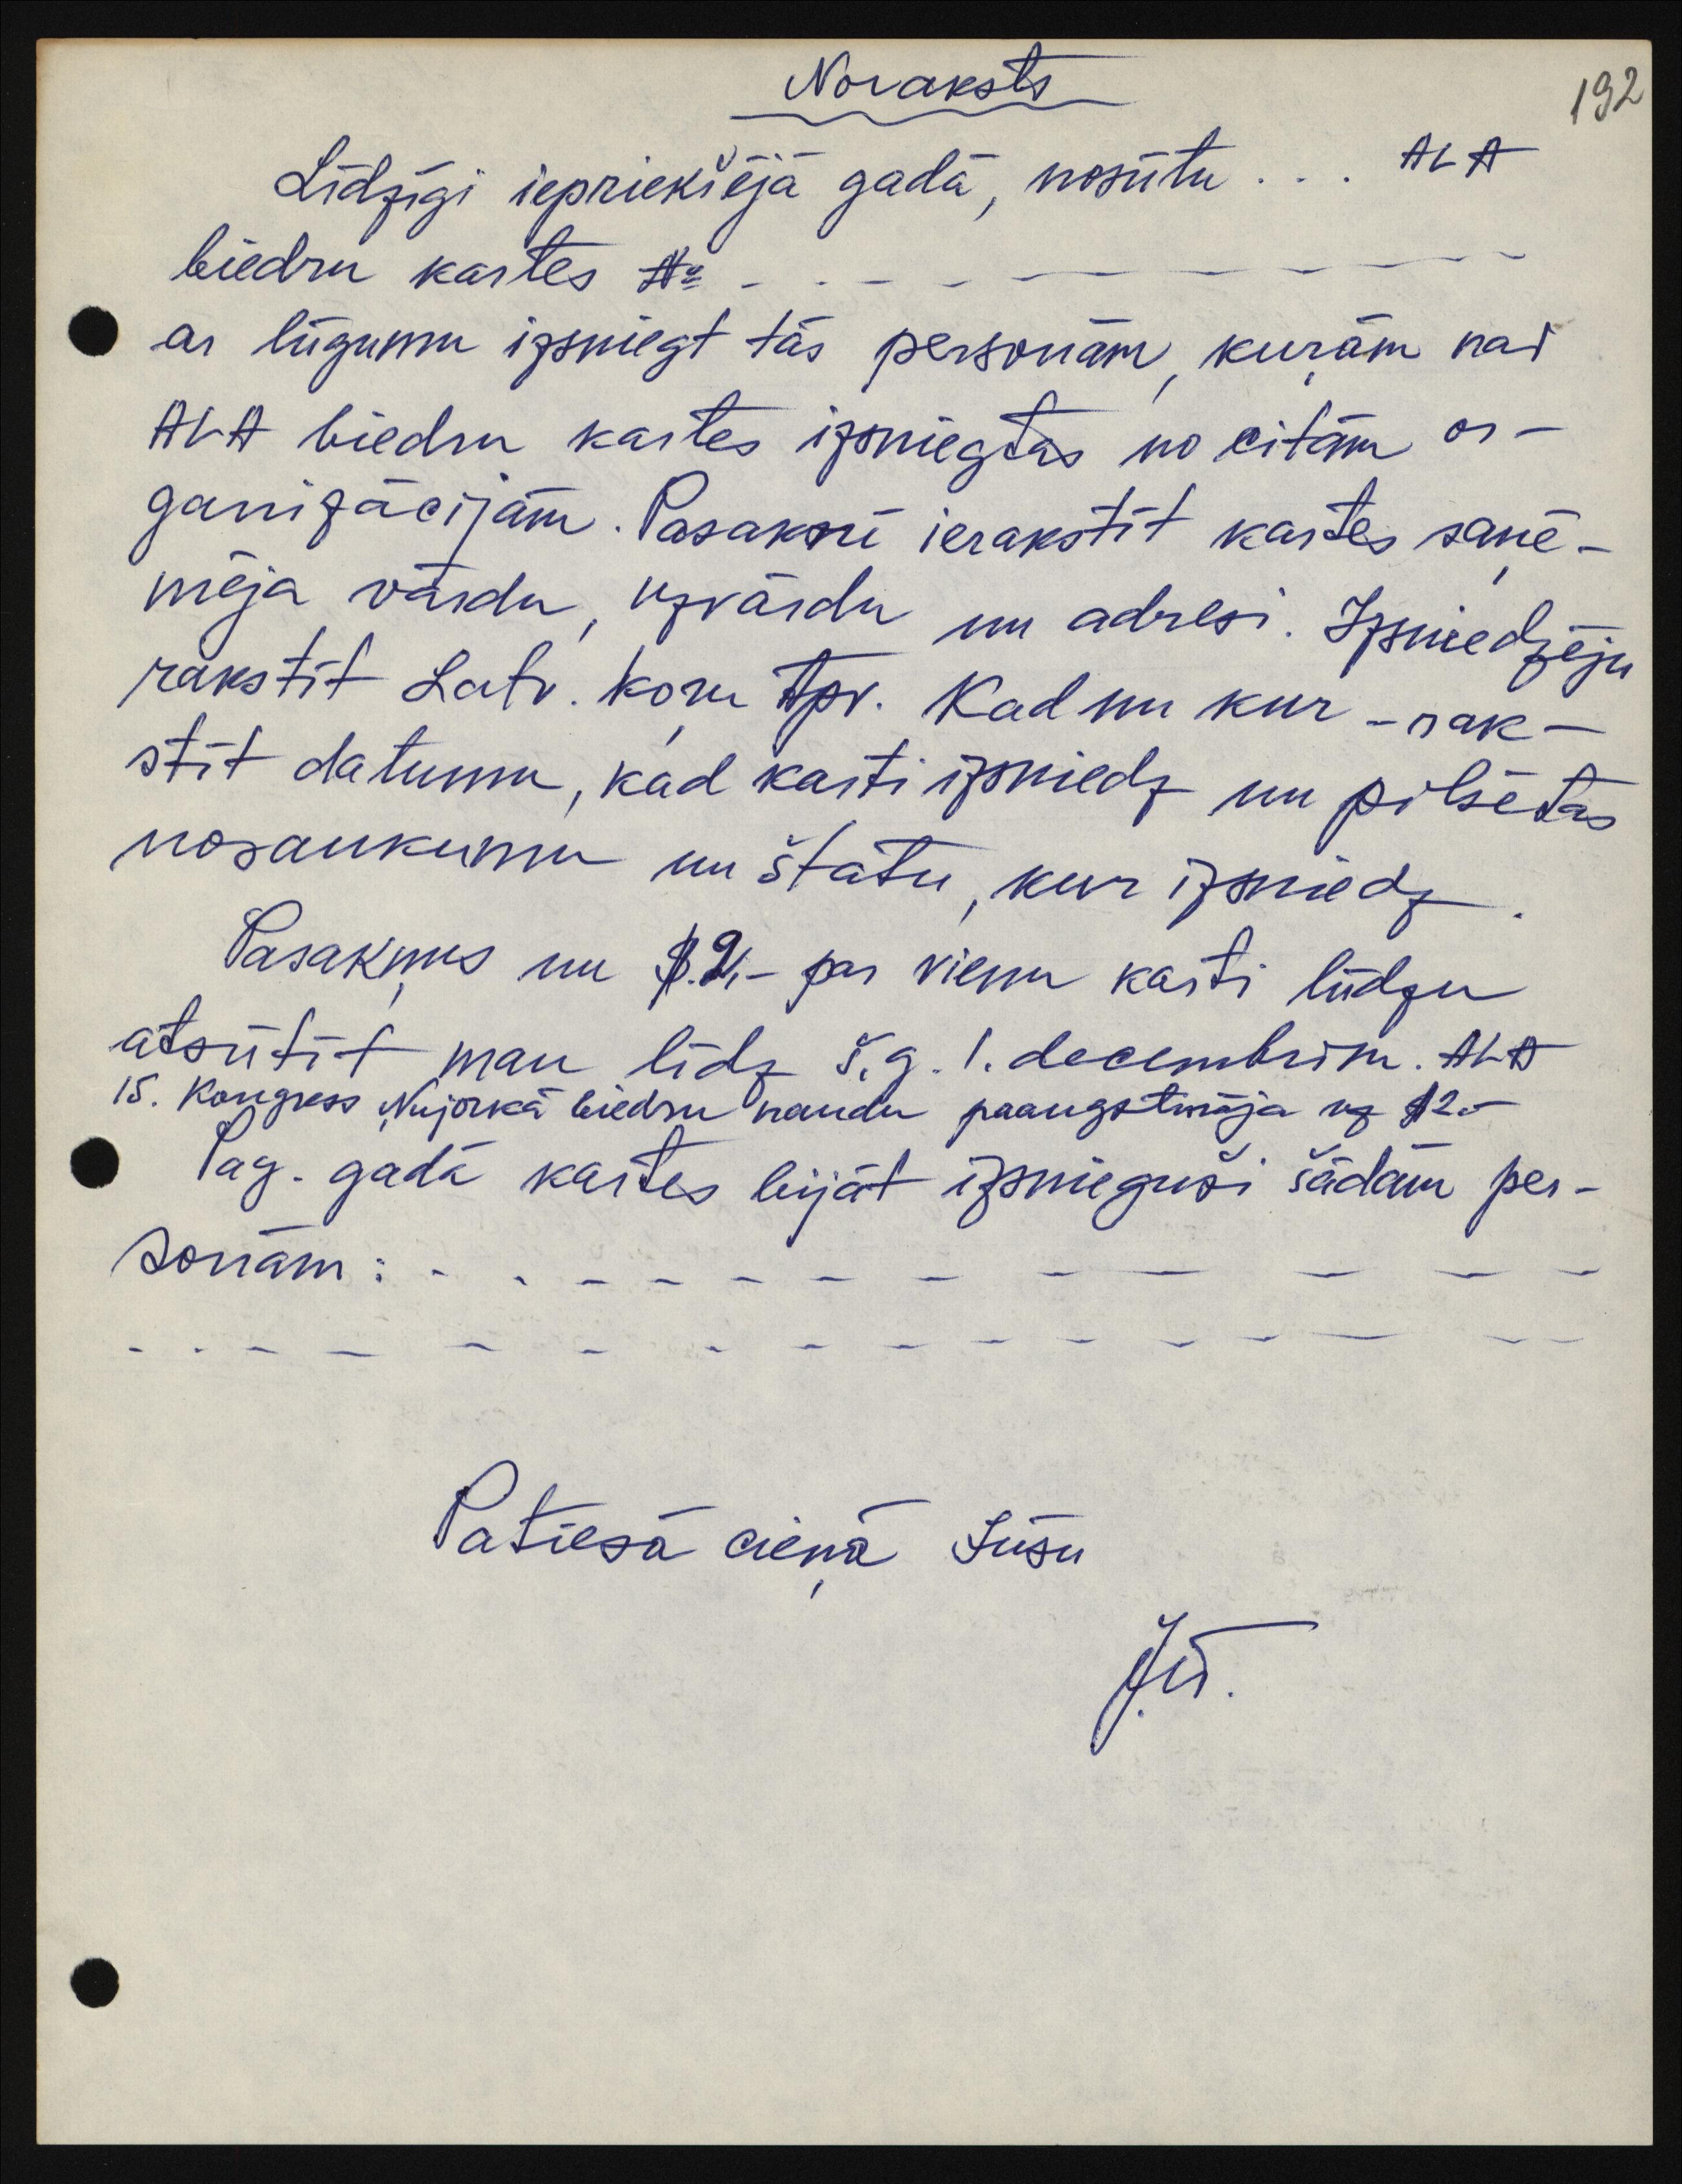 Noraksts
192
Līdzīgi iepriekšējā gadā, nosūtu . . . ALA
biedru kartes № - . - - - - - - - -
ar lūgumu izsniegt tās personām, kuŗām nav
ALA biedru kartes izsniegtas no citām or-
ganizācijām. Pasaknī ierakstīt kartes saņē-
mēja vārdu, uzvārdu un adresi. Izsniedzēju
rakstīt Latv. koŗu Apv. Kad un kur - rak-
stīt datumu, kad karti izsniedz un pilsētas
nosaukumu un štatu, kur izsniedz.
Pasakņus un $.2,- par vienu karti lūdzu
atsūtīt man līdz š.g. 1. decembrim. ALA
15. Kongress Ņujorkā biedru naudu paaugstināja uz $2.-
Pag. gadā kartes bijāt izsnieguši šādām per-
sonām: - . - - - - - - - - - -
- . - - - - - - - - - - - - - -
Patiesā cieņā Jūsu